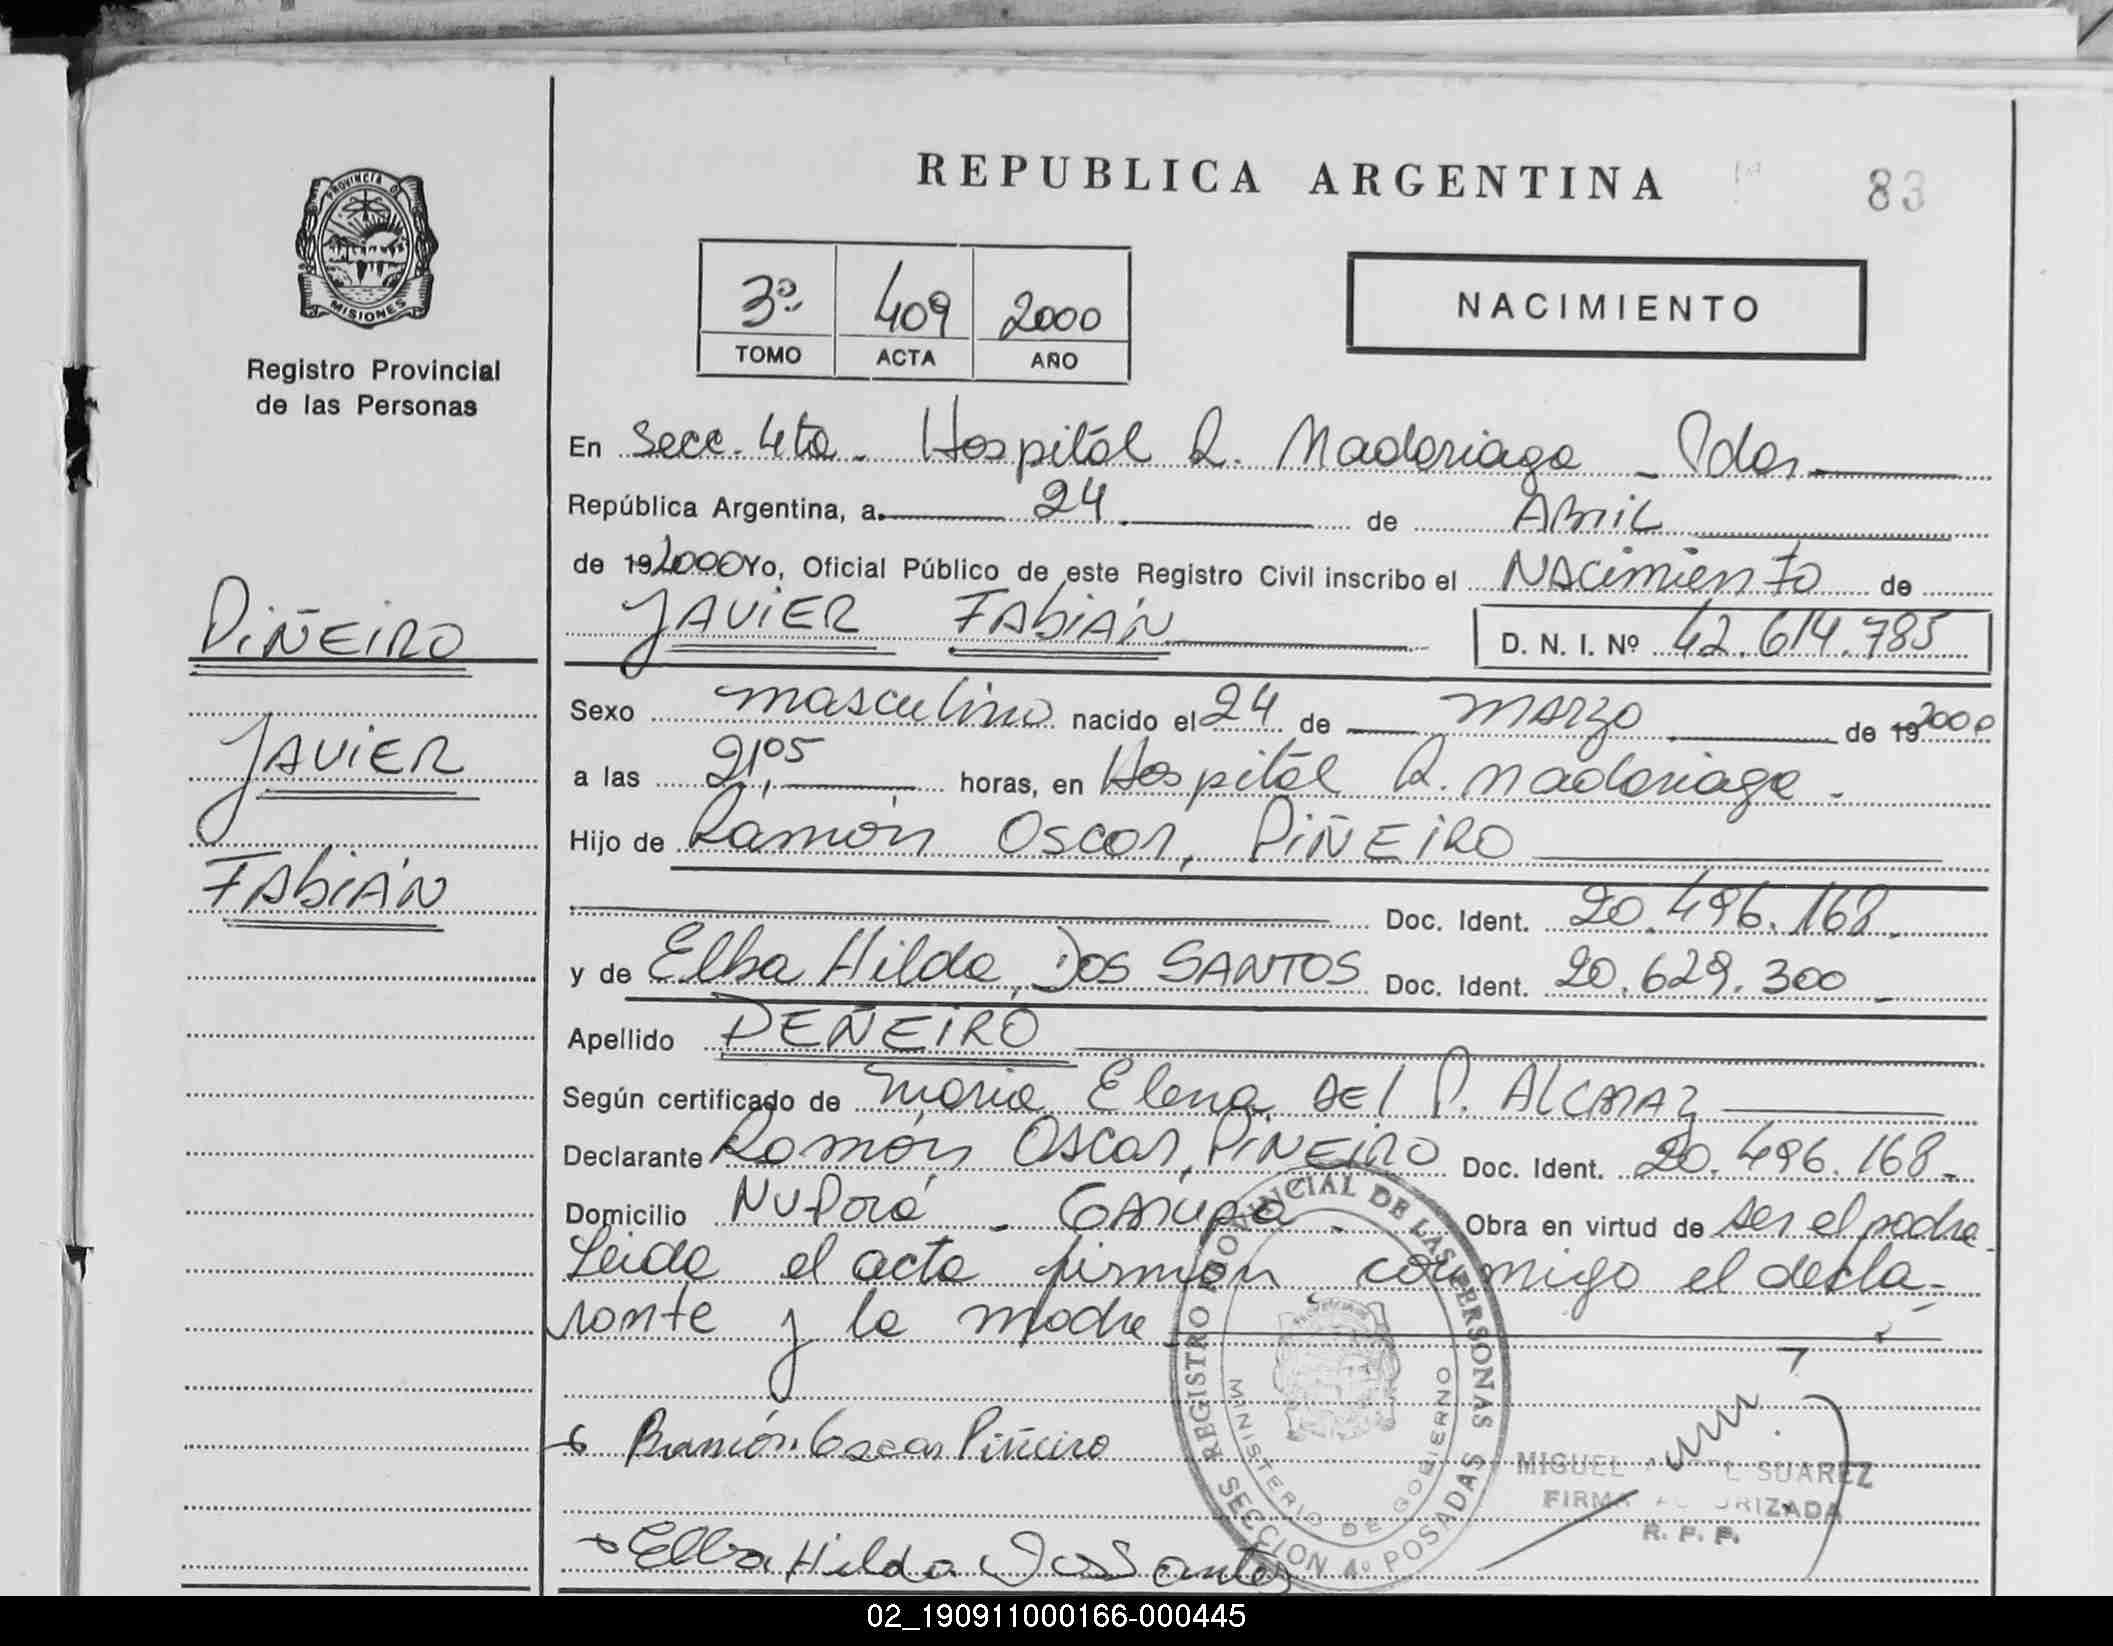 REPUBLICA ARGENTINA
83
PROVINCIA DE
MISIONES
Registro Provincial
de las Personas
3º 409 2000
TOMO ACTA AÑO
NACIMIENTO
En Secc. 4ta. Hospital R. Madariaga - Pdas
República Argentina, a 24 de Abril
de 192000 Yo, Oficial Público de este Registro Civil inscribo el Nacimiento de
JAViER FAbiÁN
D. N. I. Nº 42.614.785
PiÑEiRO
JAViER
FAbiÁN
Sexo masculino nacido el 24 de marzo de 192000
a las 21,05 horas, en Hospital R. Madariaga.
Hijo de Ramón Oscar, PiÑEiRO
Doc. Ident. 20.496.168.
y de Elba Hilda, Dos SANTOS Doc. Ident. 20.629.300
Apellido PEÑEIRO
Según certificado de Maria Elena del P. Alcaraz
Declarante Ramón Oscar, PiÑEiRO Doc. Ident. 20.496.168.
Domicilio Ñu Porá - Garupá. Obra en virtud de ser el padre.
Leida el acta firman conmigo el decla-
rante y la madre
Ramón Oscar Piñeiro
Elba Hilda Dos Santos
REGISTRO PROVINCIAL DE LAS PERSONAS
MINISTERIO DE GOBIERNO
SECCION 4º POSADAS
MIGUEL SUAREZ
FIRMA AUTORIZADA
R. P. P.
02_190911000166-000445